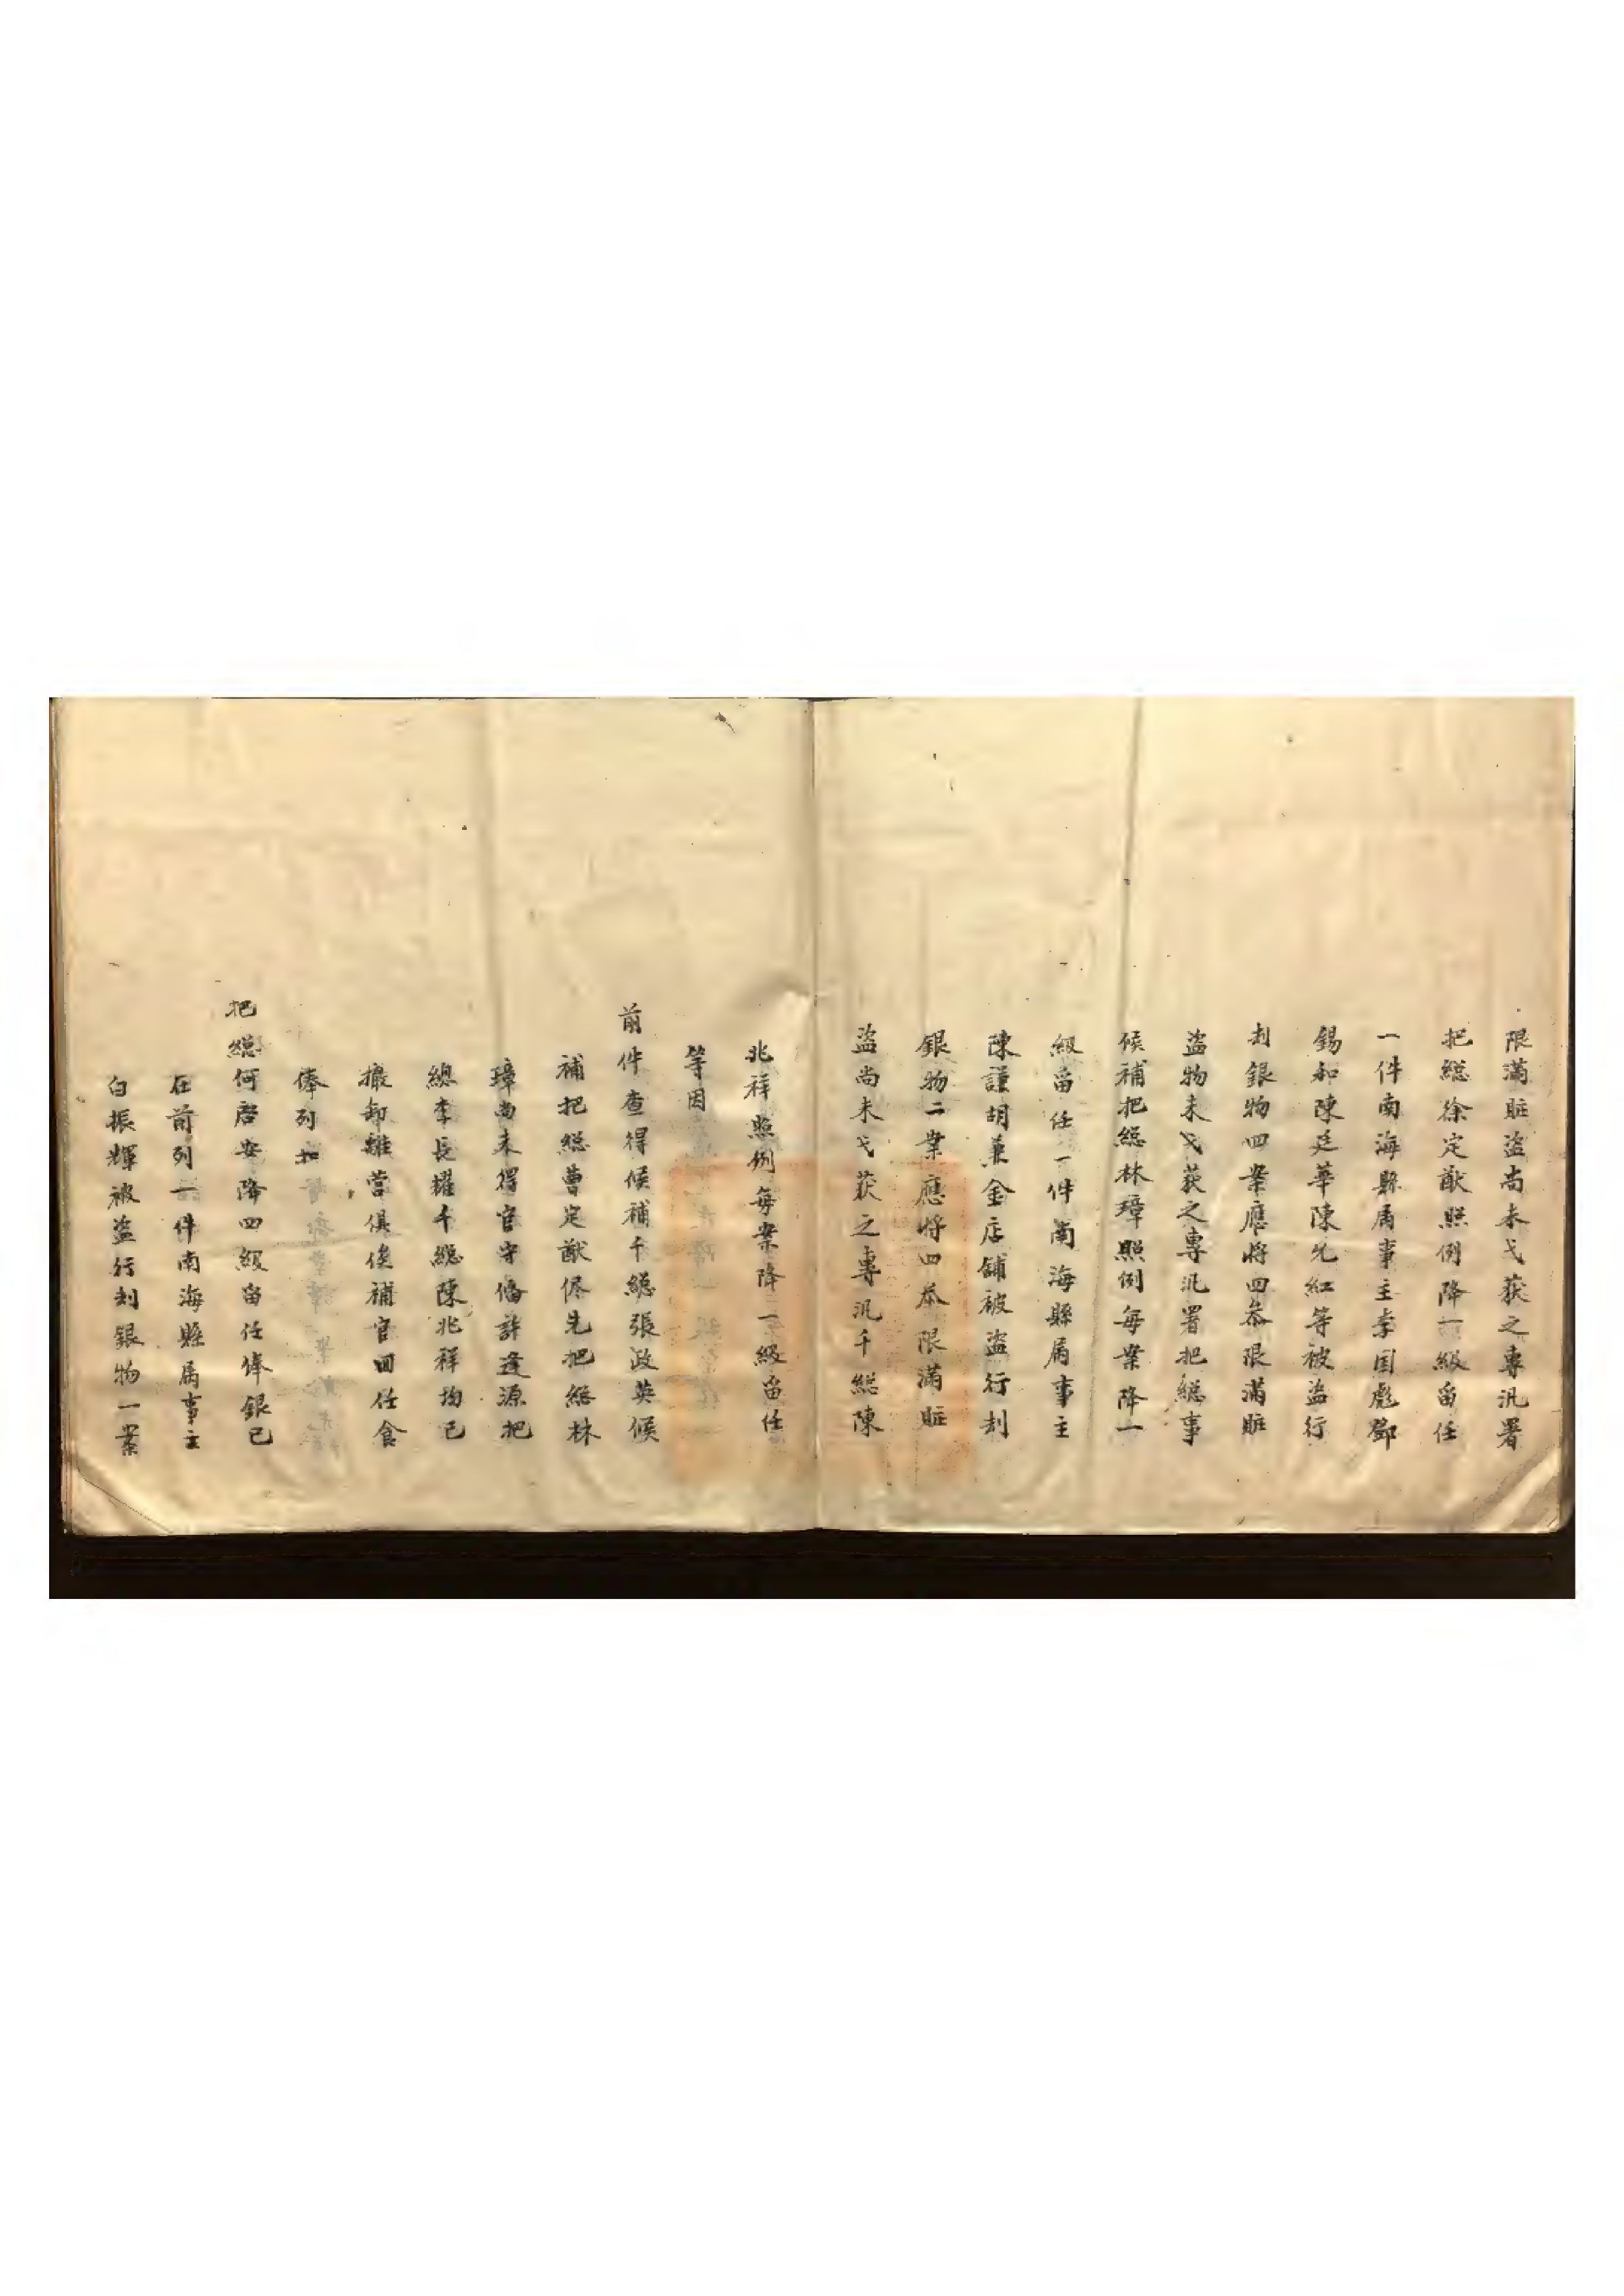 限滿賍盜尚未弋获之專汛署
把総徐定猷照例降一級畱任
一件南海縣属事主李国彪鄧
錫和陳廷華陳允紅等被盜行
刦銀物四案應將四叅限滿賍
盜物未弋获之專汛署把総事
候補把総林璋照例每案降一
級畱任一件南海縣属事主
陳謹胡兼金店舖被盜行刦
銀物二案應將四叅限滿賍
盜尚未弋获之專汛千総陳
兆祥照例每案降一級畱任
等因
前件查得候補千総張政英候
補把総曹定猷侭先把総林
璋尚未得官守備許逢源把
總李長耀千総陳兆祥均已
撤卸離营俱俟補官囬任食
俸列扣
把總何啓安降四級畱任俸銀已
在前列一件南海縣属事主
白振輝被盜行刦銀物一案